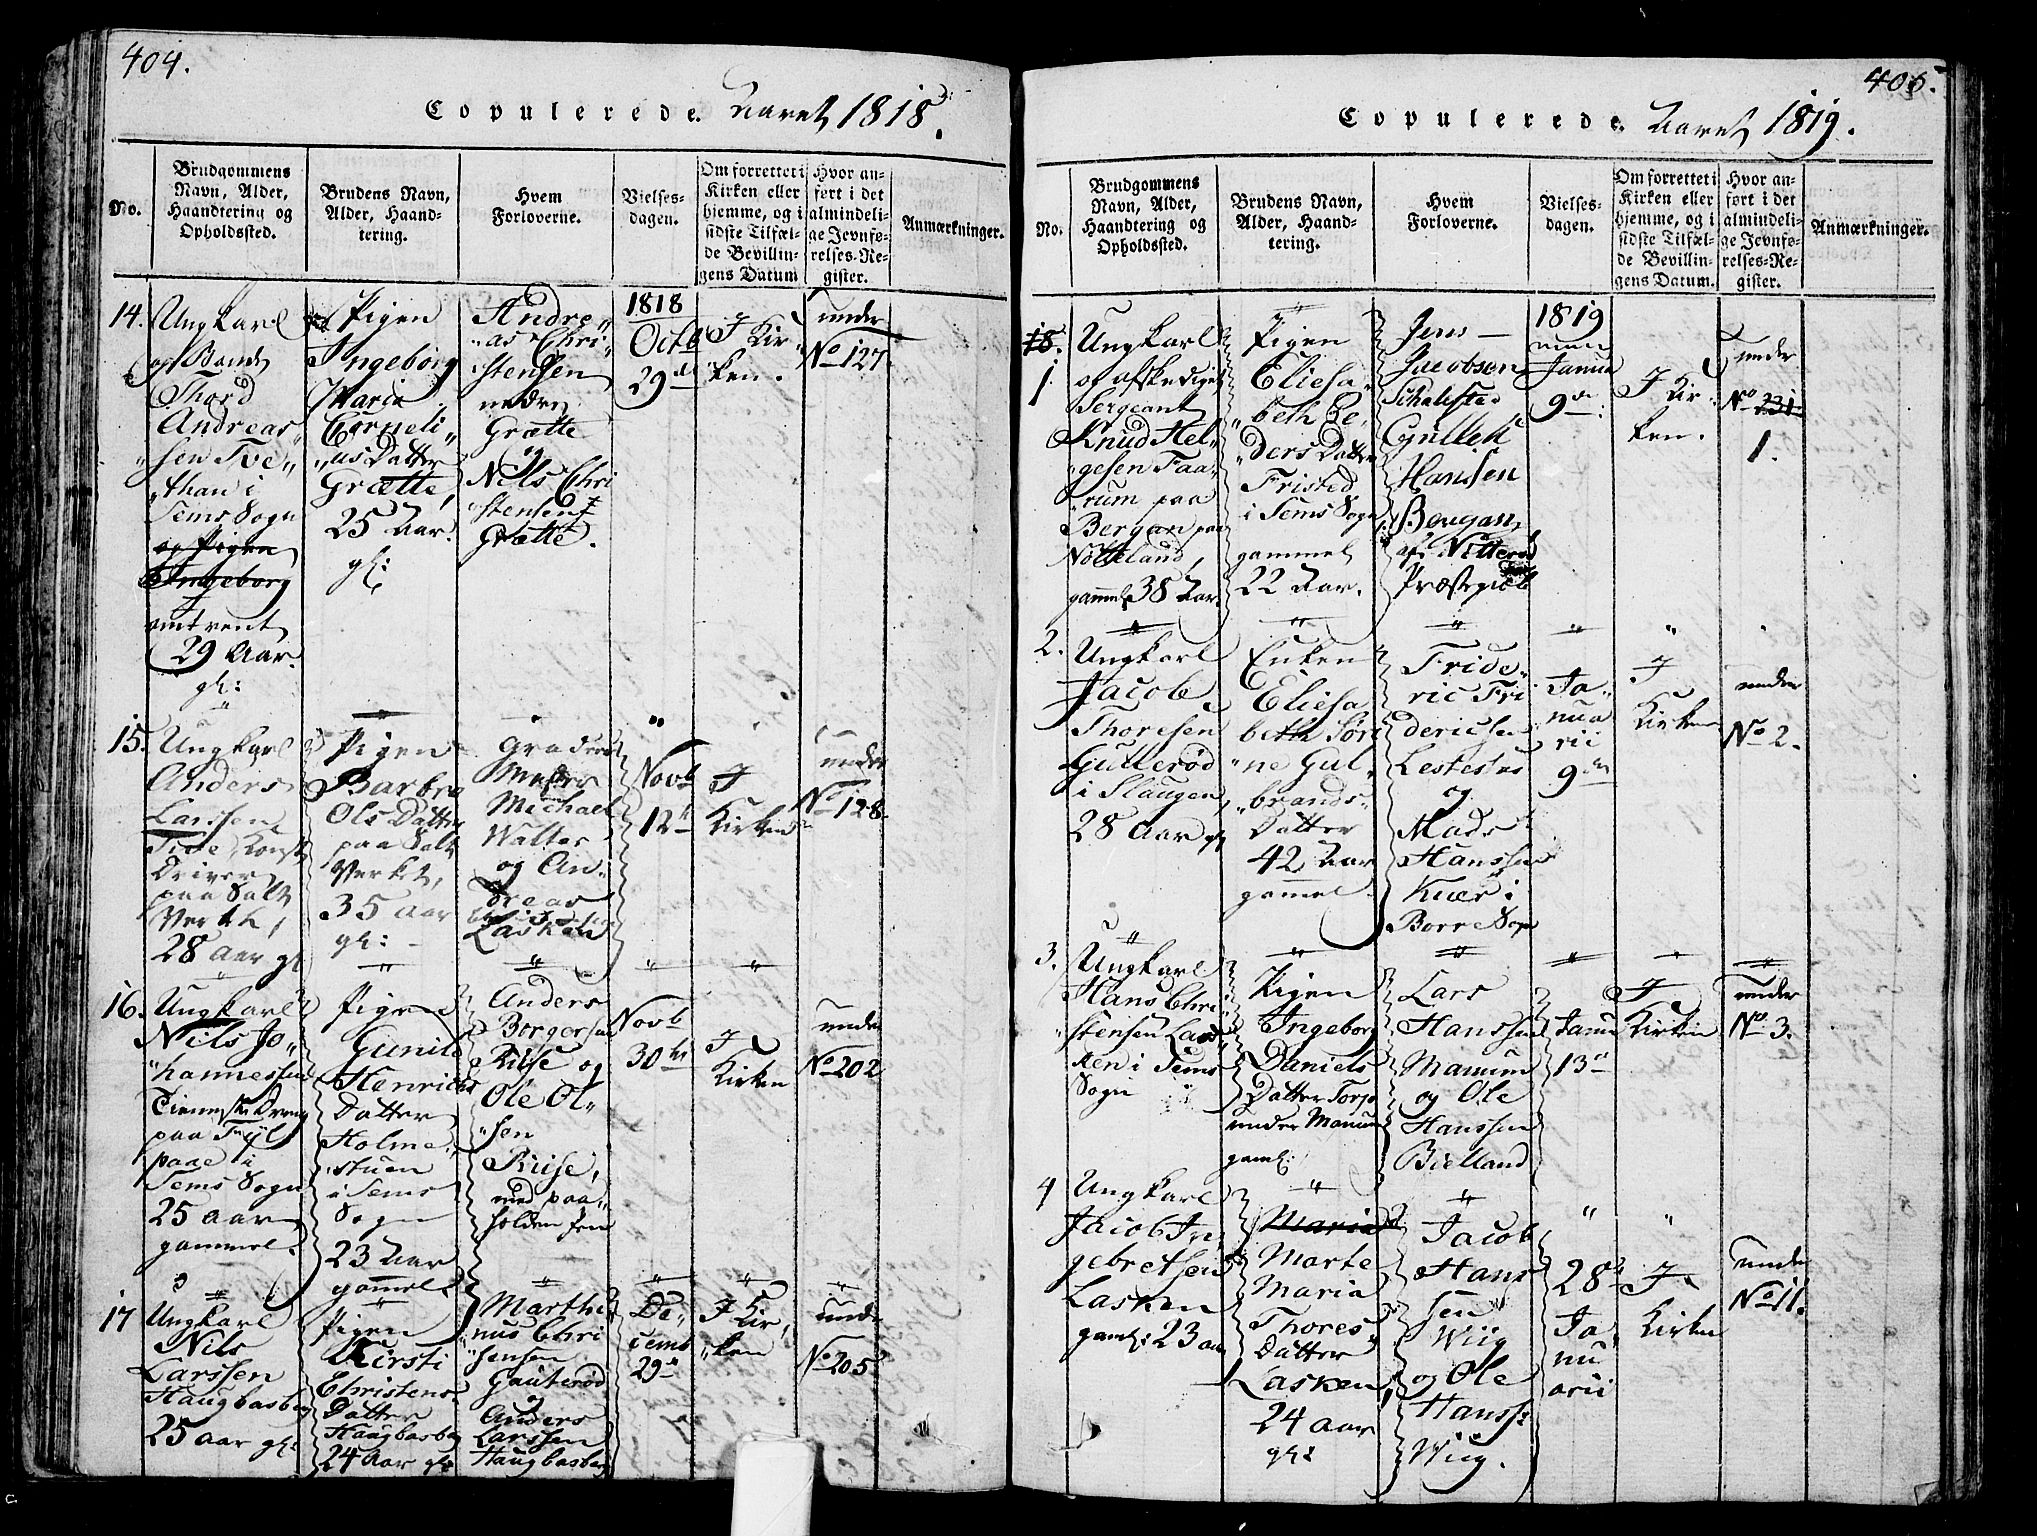 404.
Copulerede. Aaret 1818.
No.
Brudgommens
Navn, Alder,
Haandtering og
Opholdssted.
Brudens Navn,
Alder, Haand-
tering.
Hvem
Forloverne.
Vielses-
dagen.
Om forrettet i
Kirken eller
hjemme, og i
sidste Tilfæl-
de Bevillin-
gens Datum
Hvor an-
ført i det
almindeli-
ge Jevnfø-
relses-Re-
gister.
Anmærkninger.
14.
Ungkarl
og Bonde
Thord
Andreas
sen Tve
than i
Sems Sogn
og Pigen
Ingeborg
omtrent
29 Aar.
gl:
Pigen
Ingeborg
Maria
Corneli
us Datter
Grætte,
25 Aar.
gl:
Andre
as Chri
stensen
nedre
Grætte
og
Nils Chri
stensen
Grætte.
1818
Octb
29de
I Kir
ken.
under
No 127.
15.
Ungkarl
Anders
Larssen
Driver
paa Salt
Verket,
28 Aar gl
Pigen
Barbra
Ols Datter
paa Salt
Verket,
35 Aar
gl:
Michael
Walter
og An
dreas
Lasken
Novb
12te
I
Kirken
under
No 128.
16.
Ungkarl
Nils Jo
hannessen
Tieneste Dreng
paa
i
Sems Sogn
25 Aar
gammel.
Pigen
Gunild
Henrichs
Datter
Holme
stuen
i Sems
Sogn
23 Aar
gamel.
Anders
Borgersen
Riise og
Ole Ol
sen
Riise,
Novb
30te
I
Kirken
under
No 202
17
Ungkarl
Nils
Larssen
Haugbasberg
25 Aar gl:
Pigen
Kirsti
Christens
Datter
Haugbasberg
24 Aar gl:
Marthi
nus Chri
stensen
Gauterød
og
Anders
Larssen
Haugbasberg
De
cemb
29de
I Kir
ken
under
No 205
406.
Copulerede. Aaret 1819.
No.
Brudgommens
Navn, Alder,
Haandtering og
Opholdssted.
Brudens Navn,
Alder, Haand-
tering.
Hvem
Forloverne.
Vielses-
dagen.
Om forrettet i
Kirken eller
hjemme, og i
sidste Tilfæl-
de Bevillin-
gens Datum.
Hvor an-
ført i det
almindeli-
ge Jevnfø-
relses-Re-
gister.
Anmærkninger.
18.
1
Ungkarl
og afskediget
Sergeant
Knud Hel
gesen Faa
rum paa
Bergan paa
Nøtteland,
gammel 38 Aar.
Pigen
Eliesa
beth Pe
ders Datter
Fristed
i Sems Sogn
gammel
22 Aar.
Jens
Jacobsen
Schalsted
Gullek
Hansen
Bergan,
af Nitterød
Præstegield
1819
Janua
9de
I Kir
ken.
under
No 231
1.
2.
Ungkarl
Jacob
Thoresen
Gullerød
i Slaugen,
28 Aar gl
Enken
Eliesa
beth Søri
ne Gul
brands
Datter
42 Aar
gamel.
Fride
ric Fri
dericsen
og
Mads
Hanssen
Kier i
Borre Sogn
Ja
nua
rii
9de
I
Kirken
under
No 2.
3.
Ungkarl
Hans Chri
stensen Las
ken i Sems
Sogn
Pigen
Ingeborg
Daniels
Datter Torp
under Manum
gaml:
Lars
Hanssen
Manum
og Ole
Hanssen
Bielland
Janua
13de
I
Kirken
under
No 3.
4
Ungkarl
Jacob In
gebretsen
Lasken
gaml: 23 aar
Maria
Marte
Maria
Thores
Datter
Lasken
24 aar
gl:
Jacob
Hans
sen
Wiig
og Ole
Hanss:
Wiig.
28de
Ja
nu
arii
I
Kirken
under
No 11.